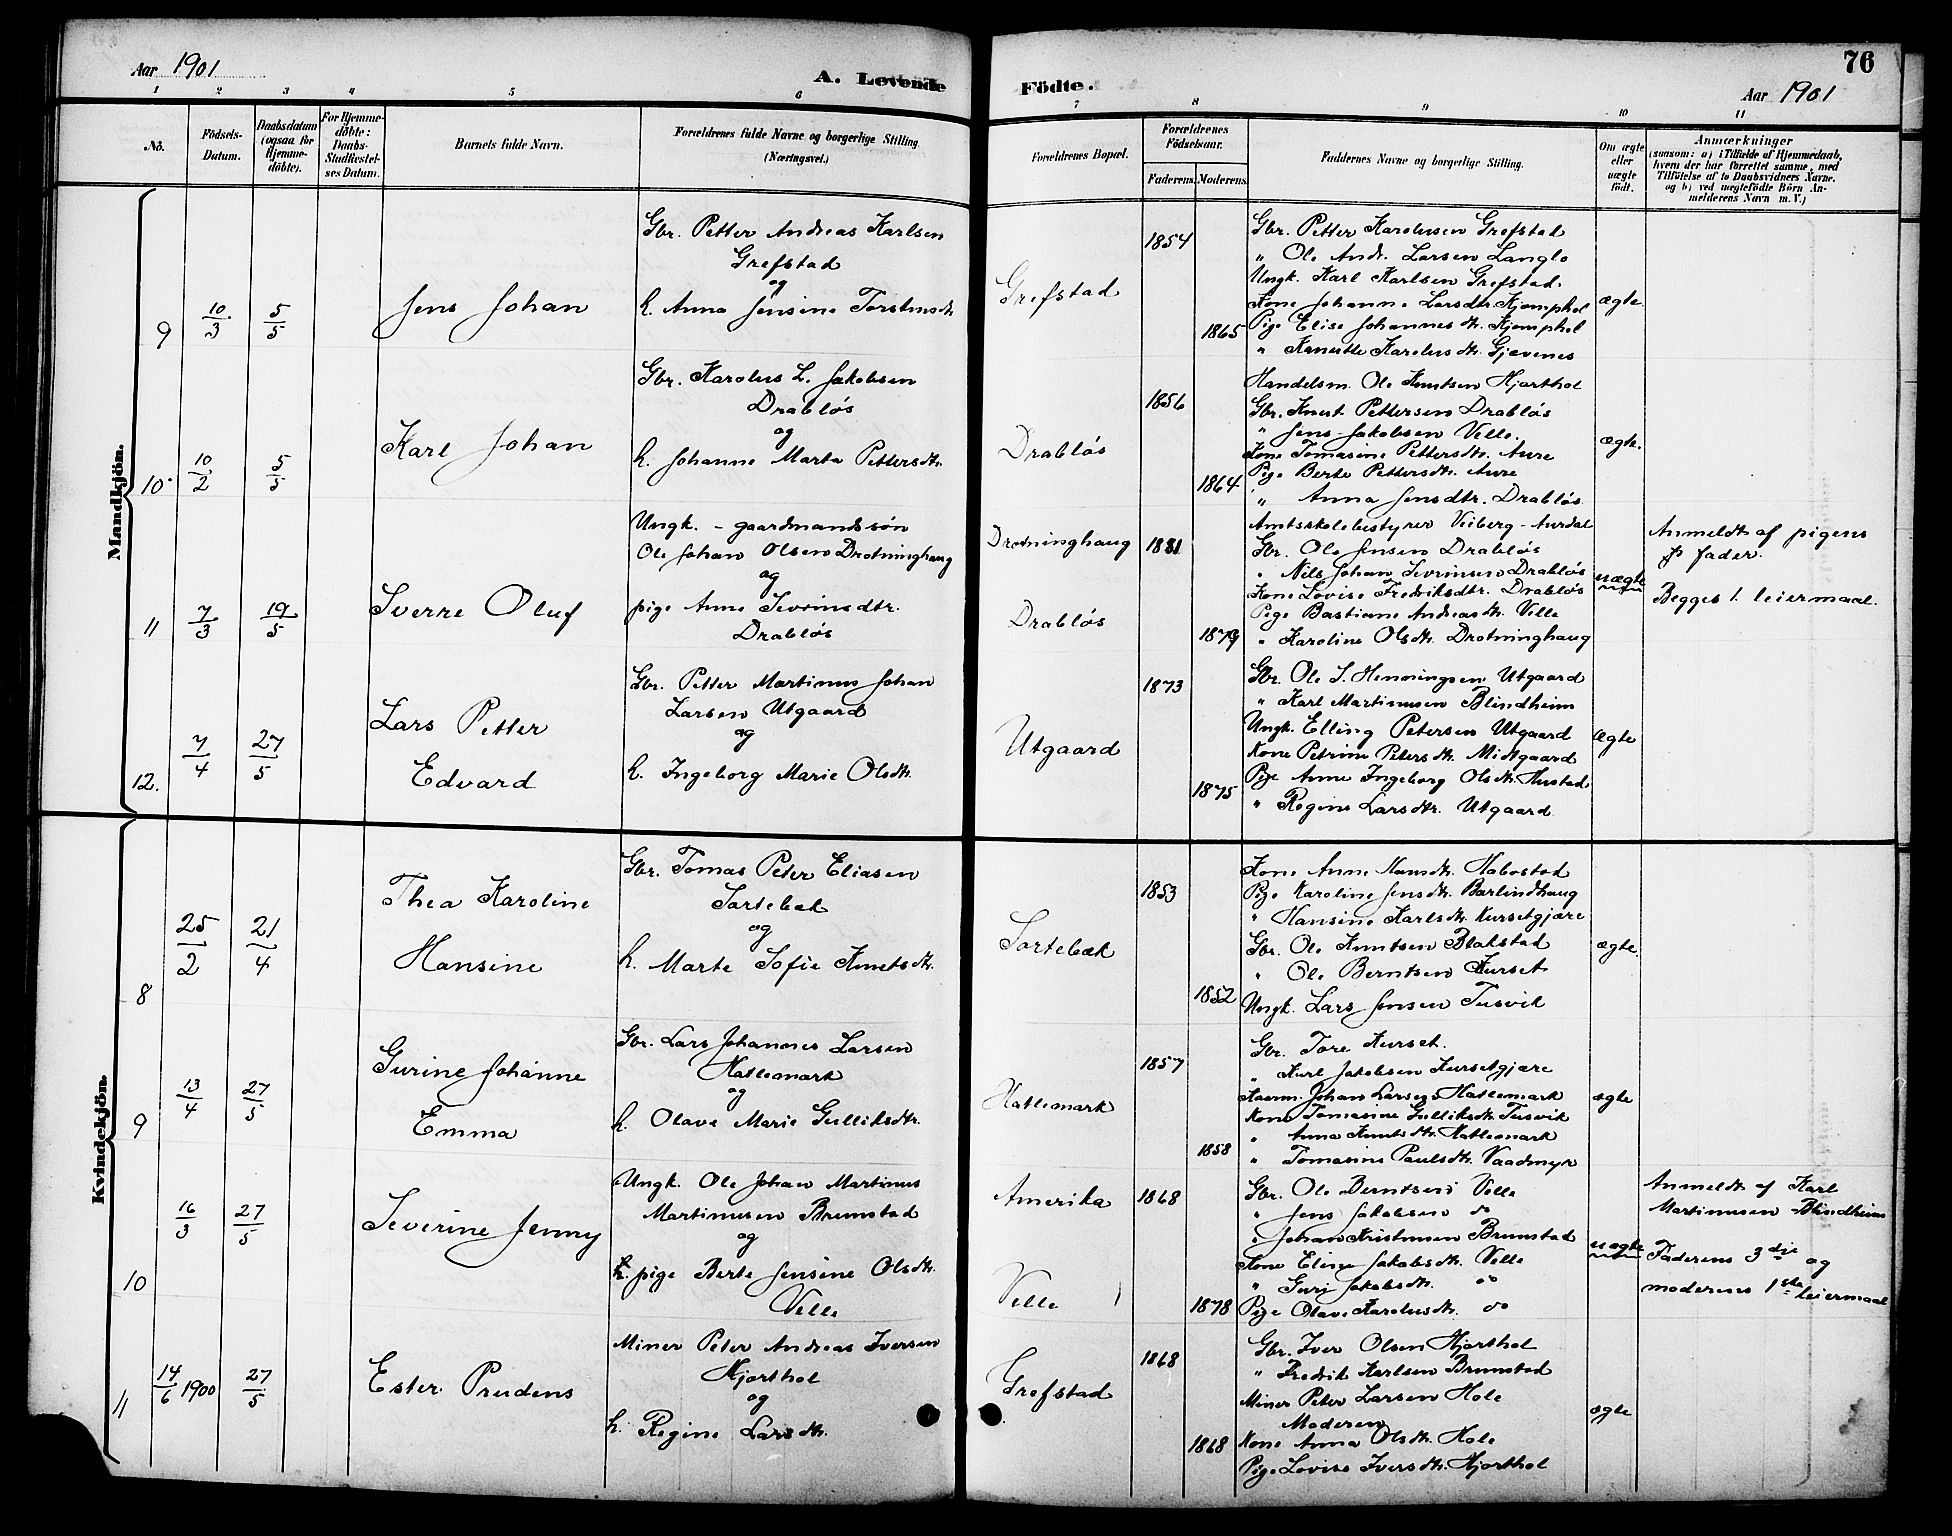 Aar 1901
A. Levende Födte.
Aar 1901
76
1 2 3 4 5 6 7 8 9 10 11
No.
Födsels-Datum.
Daabsdatum (ogsaa for Hjemme-döbte).
For Hjemme-döbte: Daabs-Stadfæstel-ses Datum.
Barnets fulde Navn.
Forældrenes fulde Navne og borgerlige Stilling
(Næringsvei.)
Forældrenes Bopæl.
Forældrenes Födselsaar.
Faderens. Moderens.
Faddernes Navne og borgerlige Stilling.
Om ægte eller uægte födt.
Anmærkninger
(saasom: a) i Tilfælde af Hjemmedaab,
hvem der har forrettet samme, med
Tilföielse af to Daabsvidners Navne.
og b) ved uægtefödte Börn An-
melderens Navn m. V.)
Mandkjön.
9
10/3
5/5
Jens Johan
Gbr. Petter Andreas Karlsen
Grefstad
og
h. Anna Jensine Torstensdt.
Grefstad
1854
1865
Gbr. Petter Karolusen Grefstad
" Ole Andr. Larsen Langlo
Ungk. Karl Karlsen Grefstad.
Kone Johanne Larsdtr. Kjemphol
Pige Elise Johannesdt. Kjemphol
" Karolusdt. Gjævenes
ægte.
10
10/2
5/5
Karl Johan
Gbr. Karolus L. Jakobsen
Drabløs
og
h. Johanne Marta Pettersdt.
Drabløs
1856
1864
Handelsm. Ole Knutsen Hjorthol
Gbr. Knut Pettersen Drabløs
" Jens Jakobsen Velle.
Kone Tomasine Pettersdt. Aure
Pige Berte Pettersdt. Aure
" Anna Jensdtr. Drabløs
ægte.
11
7/3
19/5
Sverre Oluf
Ungk. - gaardmandssøn
Ole Johan Olsen Drotninghaug
og
pige Anne Severinsdtr.
Drabløs
Drotninghaug
Drabløs
1881
1879
Amtsskolebestyrer Viiberg - Aurdal
Gbr. Ole Jensen Drabløs
" Nils Johan Severinsen Drabløs
Kone Lovise Fredriksdtr. Drabløs
Pige Bastiane Andreasdt. Velle
" Karoline Olsdt. Drotninghaug
uægte
Anmeldt af pigens
fader.
Begges 1. leiermaal.
12.
7/4
27/5
Lars Petter
Edvard
Gbr. Petter Martinus Johan
Larsen Utgaard
og
h. Ingeborg Marie Olsdt.
Utgaard
1873
1875
Gbr. Ole J. Henningsen Utgaard
" Karl Martinusen Blindheim
Ungk. Elling Petersen Utgaard
Kone Petrine Petersdt. Midtgaard
Pige Anne Ingeborg Olsdt. Hustad.
" Regine Larsdtr. Utgaard
Ægte
Kvindekjön.
8
25/2
21/4
Thea Karoline
Hansine
Gbr. Tomas Peter Eliasen
Sortebæk
og
h. Marte Sofie Knutsdt.
Sortebæk
1853
1852
Kone Anne Habostad
Pige Karoline Jensdt. Barlindhaug
" Hansine Karlsdt. Kursetgjære
Gbr. Ole Knutsen Blakstad
" Ole Berntsen Kurset
Ungk. Lars Jensen Tusvik
ægte.
9
13/4
27/5
Gurine Johanne
Emma
Gbr. Lars Johannes Larsen
Hatlemark
og
h. Olave Marie Gulliksdtr.
Hatlemark
1857
1858
Gbr. Tore Kurset.
" Karl Jakobsen Kursetgjære
Johan Larsen Hatlemark
Kone Tomasine Gulliksdt. Tusvik
" Anna Knutsdt. Hatlemark
" Tomasine Paulsdt. Vaadmyr
ægte
10
16/3
27/5
Severine Jenny
Ungk. Ole Johan Martinus
Martinusen Brunstad
og
pige Berte Jensine Olsdt.
Velle
Amerika
Velle
1868
1878
Gbr. Ole Berntsen Velle
" Jens Jakobsen do
" Johan Kristinusen Brunstad
Kone Eline Jakobsdt. Velle
" Guri Jakobsdt. do
Pige Olave Karolusdt. do
uægte
Anmeldt af Karl
Martinusen Blindheim
Faderens 3die og
moderens 1ste leiermaal
11
14/6 1900
27/5
Ester Prudens
Miner Peter Andreas Iversen
Hjorthol
og
h. Regine Larsdt.
Grefstad
1868
1868
Gbr. Iver Olsen Hjorthol
" Fredrik Karlsen Brunstad
Miner Peter Larsen Hole
Moderen
Kone Anna Olsdt. Hole
Pige Lovise Iversdt. Hjorthol
ægte